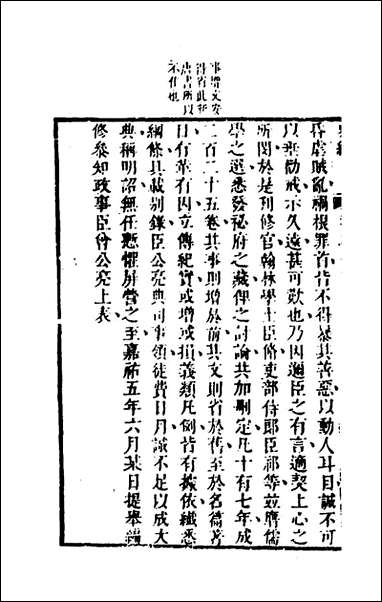 昏虐賊亂禍根罪首皆不得暴其善惡以動人耳目誠不可
以垂勸戒示久遠甚可歎也乃因邇臣之有言適契上心之
所閔於是刊修官翰林學士臣脩吏部侍郎臣祁等並膺儒
學之選悉發秘府之藏俾之討論共加刪定凡十有七年成
二百二十五卷其事則增於前其文則省於舊至於名篇著
目有革有因立傳紀實或增或損義類凡例皆有據依纖悉
綱條具載別錄臣公亮典司事領徒費日月誠不足以成大
典稱明詔無任慙懼屏營之至嘉祐五年六月某日提舉編
修參知政事臣曾公亮上表
事增文安
得省此新
唐書所以
不佳也